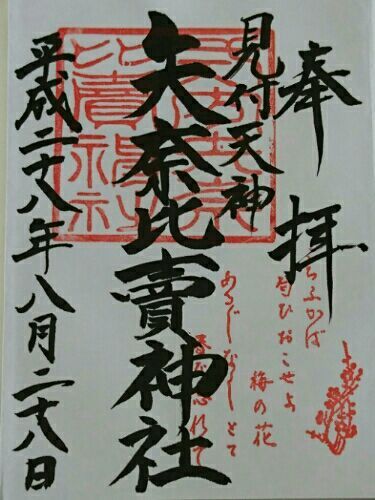 奉拝
見付天神
矢奈比賣神社
平成二十八年八月二十八日
こちふかば
匂ひおこせよ
梅の花
あるじなしとて